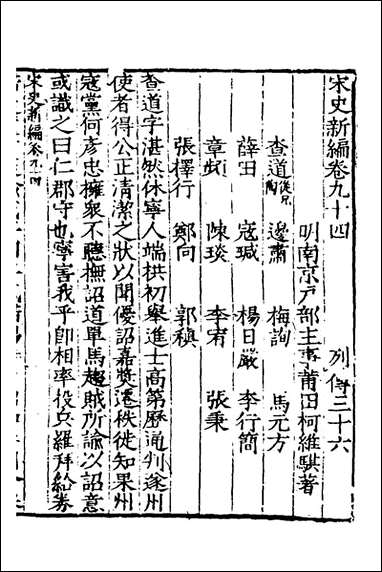 宋史新編卷九十四 列傳三十六
明南京戶部主事莆田柯維騏著
查道從兄陶 邊肅 梅詢 馬元方
薛田 寇瑊 楊日嚴 李行簡
章頻 陳琰 李宥 張秉
張擇行 鄭向 郭稹
查道字湛然休寧人端拱初舉進士高第歷通判遂州
使者得公正清潔之狀以聞優詔嘉獎遷秩徙知果州
寇黨何彥忠擁衆不聽撫詔道單馬趨賊所諭以詔意
或識之曰仁郡守也寧害我乎卽相率投兵羅拜給券
宋史新編卷九十四